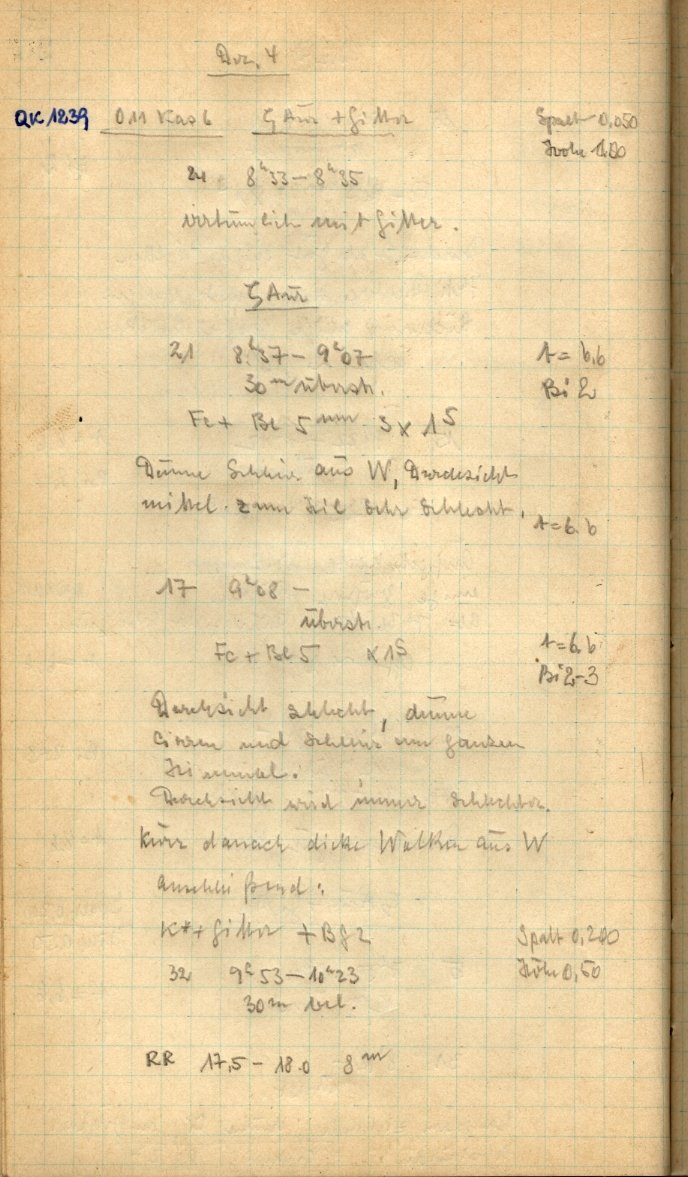 Dez. 4
QK 1239 O II Kas 6 ζ Aur + Gitter Spalt 0,050
Höhe 1.00
21 8ʰ33 – 8ʰ35
irrtümlich mit Gitter.
ζ Aur
21 8ʰ37 – 9ʰ07 t = 6,6
30ᵐ überstr. Bi 2
Fe + Bl 5 mm 3 x 1ˢ
Dünne Schleier aus W, Durchsicht
mittel. zum Teil sehr schlecht.
t = 6.6
17 9ʰ08 –
überstr.
Fe + Bl 5 x 1ˢ t = 6.6
Bi 2-3
Durchsicht schlecht, dünne
Cirren und Schleier am ganzen
Himmel.
Durchsicht wird immer schlechter.
Kurz danach dicke Wolken aus W
Anschließend:
K* + Gitter + BG 2 Spalt 0,200
32 9ʰ53 – 10ʰ23 Höhe 0,50
30ᵐ bel.
RR 17,5 – 18.0 8ᵐ